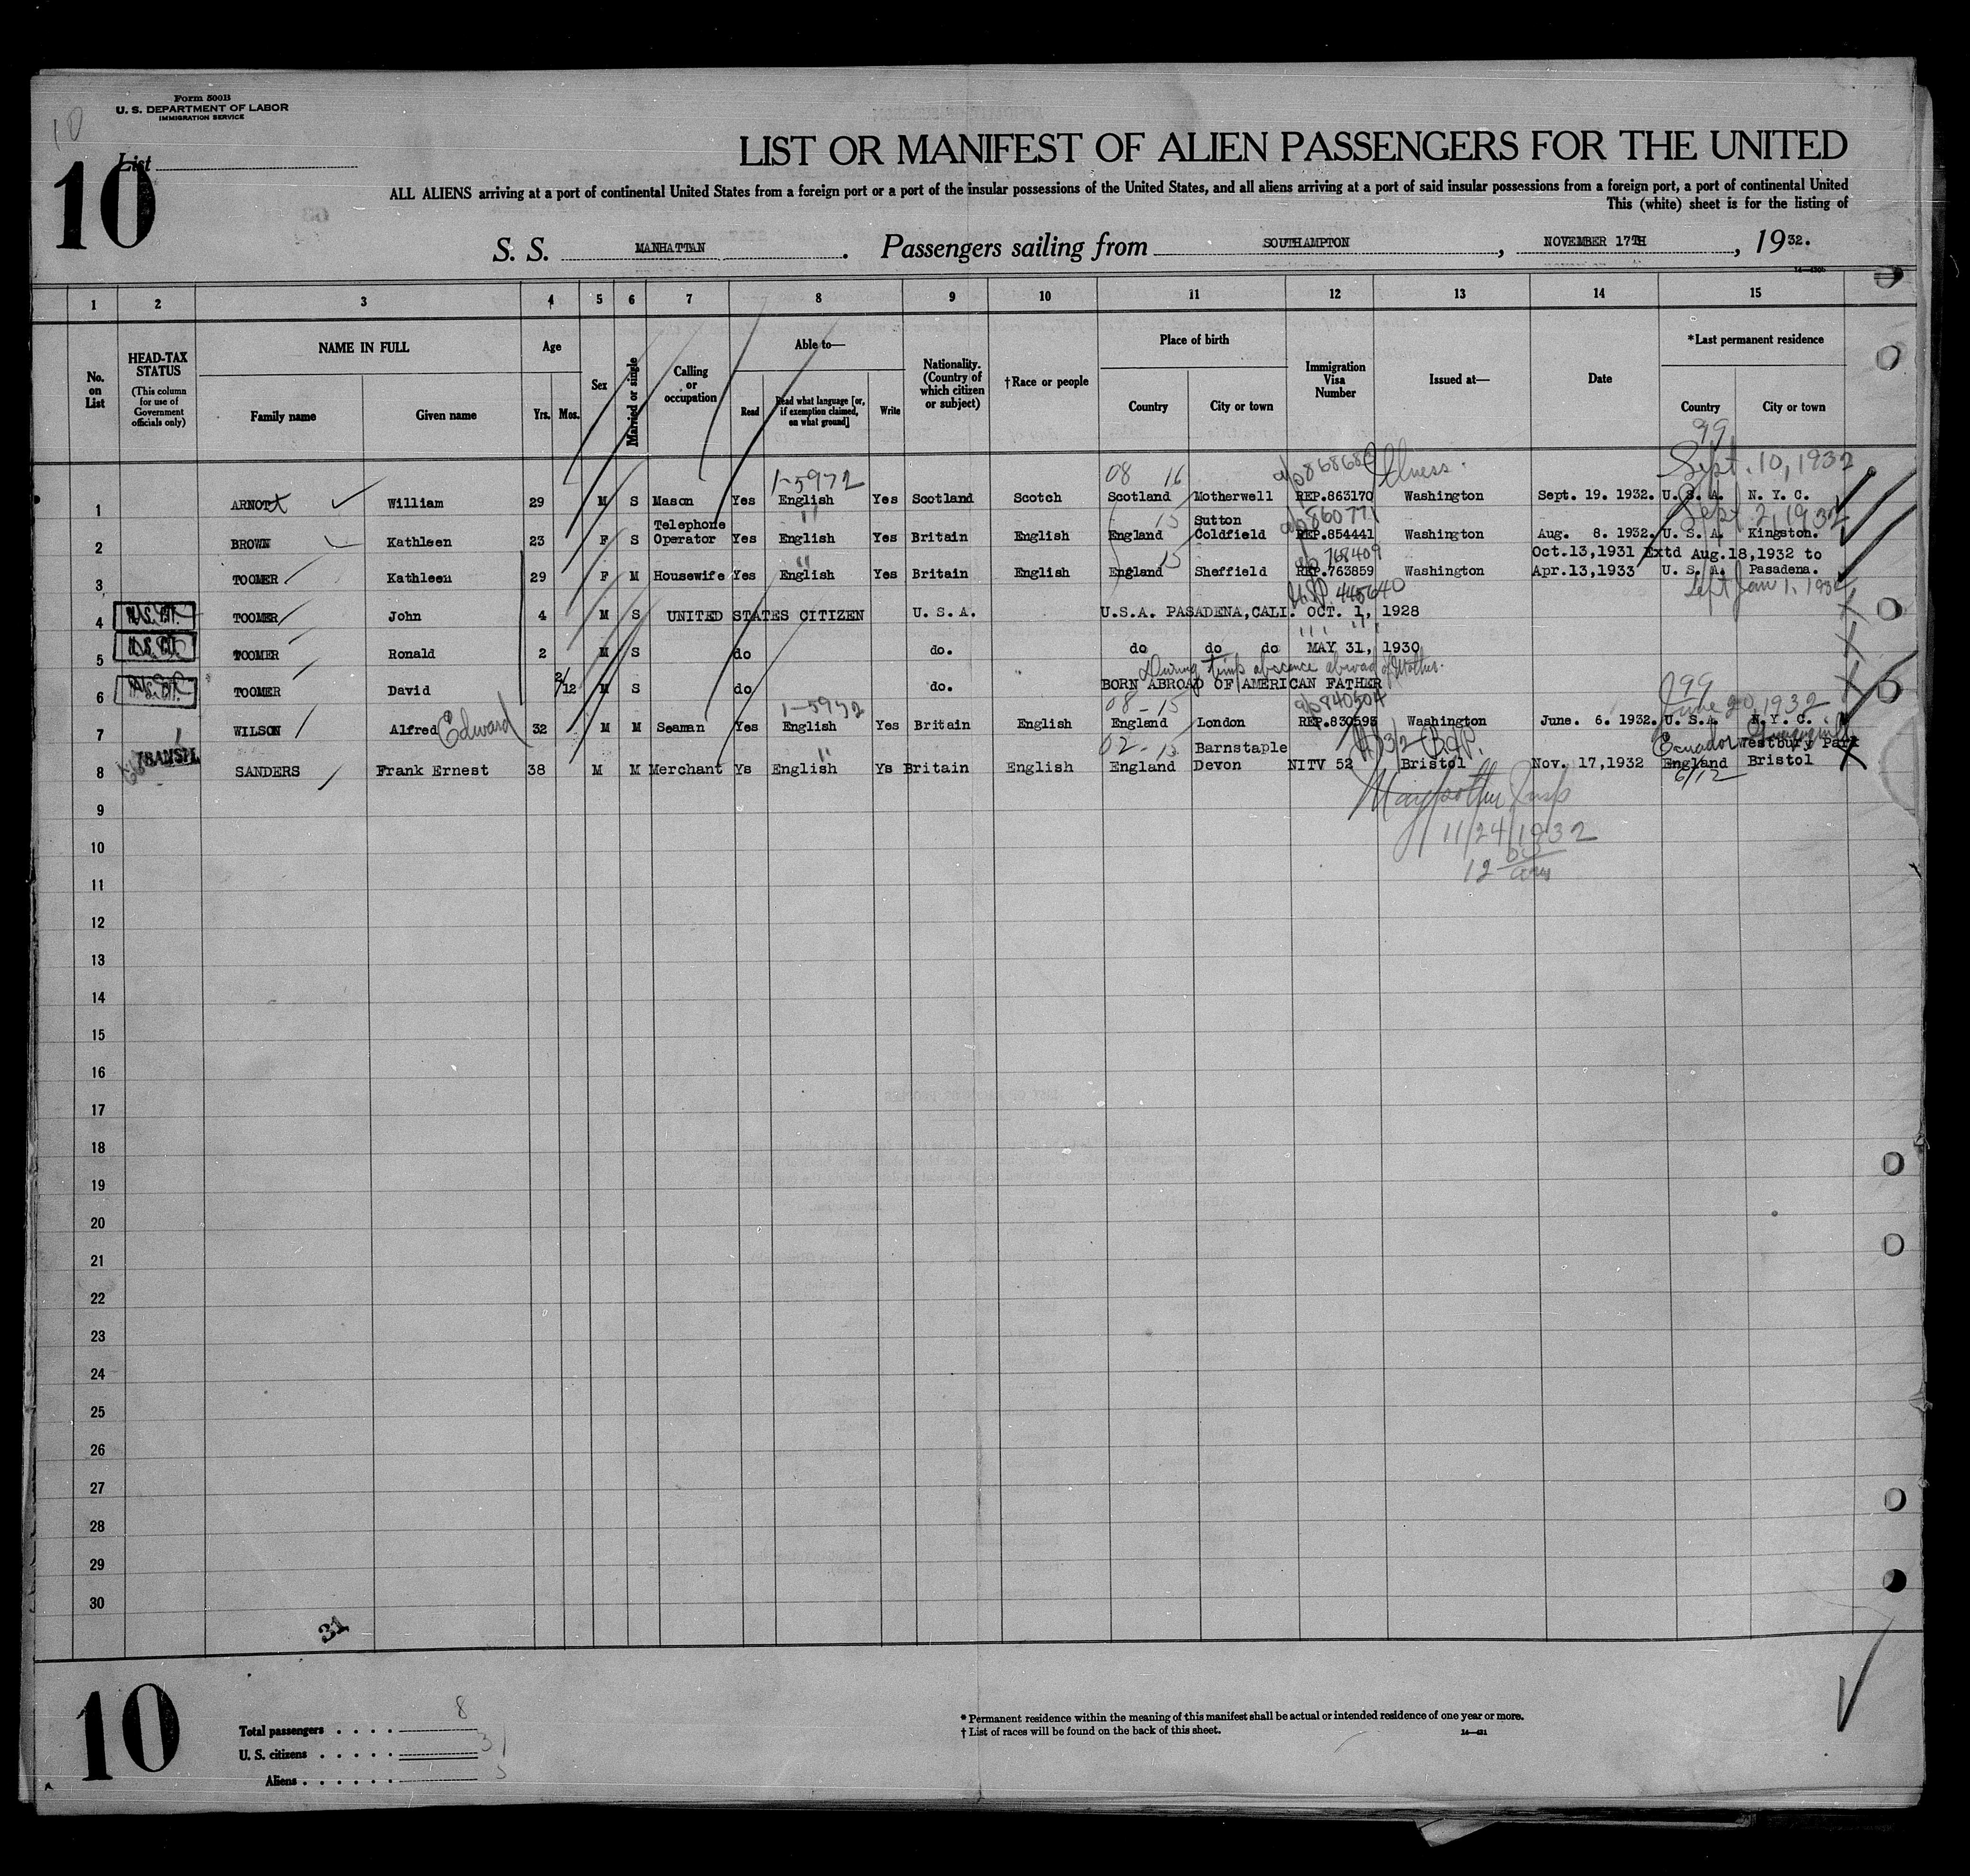 Form 500B
U. S. DEPARTMENT OF LABOR
IMMIGRATION SERVICE
10
List
10
LIST OR MANIFEST OF ALIEN PASSENGERS FOR THE UNITED
ALL ALIENS arriving at a port of continental United States from a foreign port or a port of the insular possessions of the United States, and all aliens arriving at a port of said insular possessions from a foreign port, a port of continental United
This (white) sheet is for the listing of
S. S. MANHATTAN. Passengers sailing from SOUTHAMPTON, NOVEMBER 17TH, 1932.
1 2 3 4 5 6 7 8 9 10 11 12 13 14 15
No. on List
HEAD-TAX STATUS (This column for use of Government officials only)
NAME IN FULL
Family name Given name
Age
Yrs. Mos.
Sex
Married or single
Calling or occupation
Able to—
Read Read what language [or, if exemption claimed, on what ground] Write
Nationality. (Country of which citizen or subject)
†Race or people
Place of birth
Country City or town
Immigration Visa Number
Issued at—
Date
*Last permanent residence
Country City or town
99
1-5972 08 16 Illness. Sept. 10, 1932
1 ARNOTT William 29 M S Mason Yes English Yes Scotland Scotch Scotland Motherwell REP.863170 Washington Sept. 19. 1932. U. S. A. N. Y. C.
" 15 860771 Sept. 2, 1932
2 BROWN Kathleen 23 F S Telephone Operator Yes English Yes Britain English England Sutton Coldfield REP.854441 Washington Aug. 8. 1932. U. S. A. Kingston.
" 15 768409 Oct.13,1931 Extd Aug.18,1932 to
3 TOOMER Kathleen 29 F M Housewife Yes English Yes Britain English England Sheffield REP.763859 Washington Apr.13,1933 U. S. A. Pasadena.
445640 Jan 1. 1932
4 TOOMER John 4 M S UNITED STATES CITIZEN U. S. A. U.S.A. PASADENA,CALI. OCT. 1, 1928
5 TOOMER Ronald 2 M S do do. do do do MAY 31, 1930
During temp absence abroad of Mother.
6 TOOMER David 2/12 M S do do. BORN ABROAD OF AMERICAN FATHER
1-5972 08-15 840504 99 June 20, 1932
7 WILSON Alfred Edward 32 M M Seaman Yes English Yes Britain English England London REP.830593 Washington June. 6. 1932. U. S.A. N. Y. C.
TRANSIT " 02-15 Ecuador Guayaquil
8 SANDERS Frank Ernest 38 M M Merchant Ys English Ys Britain English England Barnstaple Devon NITV 52 Bristol Nov. 17,1932 England Westbury Park Bristol
6/12
9
11/24/1932
10
12
11
12
13
14
15
16
17
18
19
20
21
22
23
24
25
26
27
28
29
30
31
10
Total passengers 8
U. S. citizens 3
Aliens 5
* Permanent residence within the meaning of this manifest shall be actual or intended residence of one year or more.
† List of races will be found on the back of this sheet.
14—421